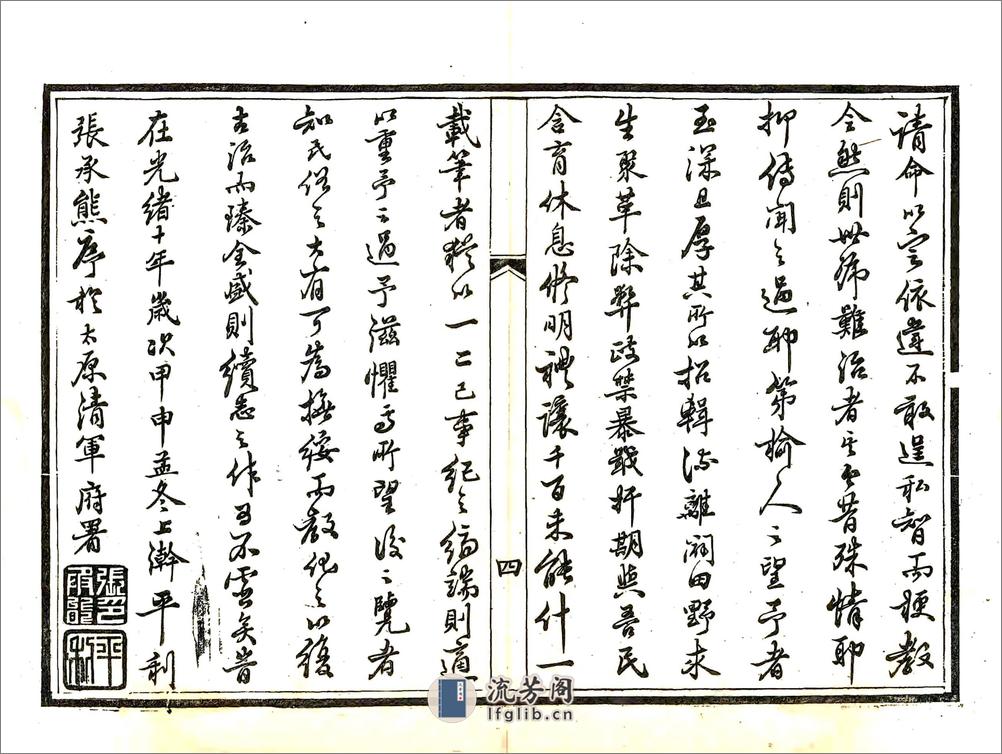 請命以寔依違不敢逞私智而梗教
令然則世號難治者豈今昔殊情耶
抑傳聞之過耶第榆人之望予者
至深且厚其所以招輯流離闢田野求
生聚革除弊政禁暴戢扞期與吾民
含育休息修明禮讓千百未能什一
載筆者猶以一二已事紀之編端則適
以重予之過予滋懼焉所望後之覽者
知民俗之大有可為撫綏而教化之以復
古治而臻全盛則續志之作為不虛矣旹
在光緒十年歲次甲申孟冬上澣平利
張承熊序於太原清軍府署
四
流芳阁
lfglib.cn